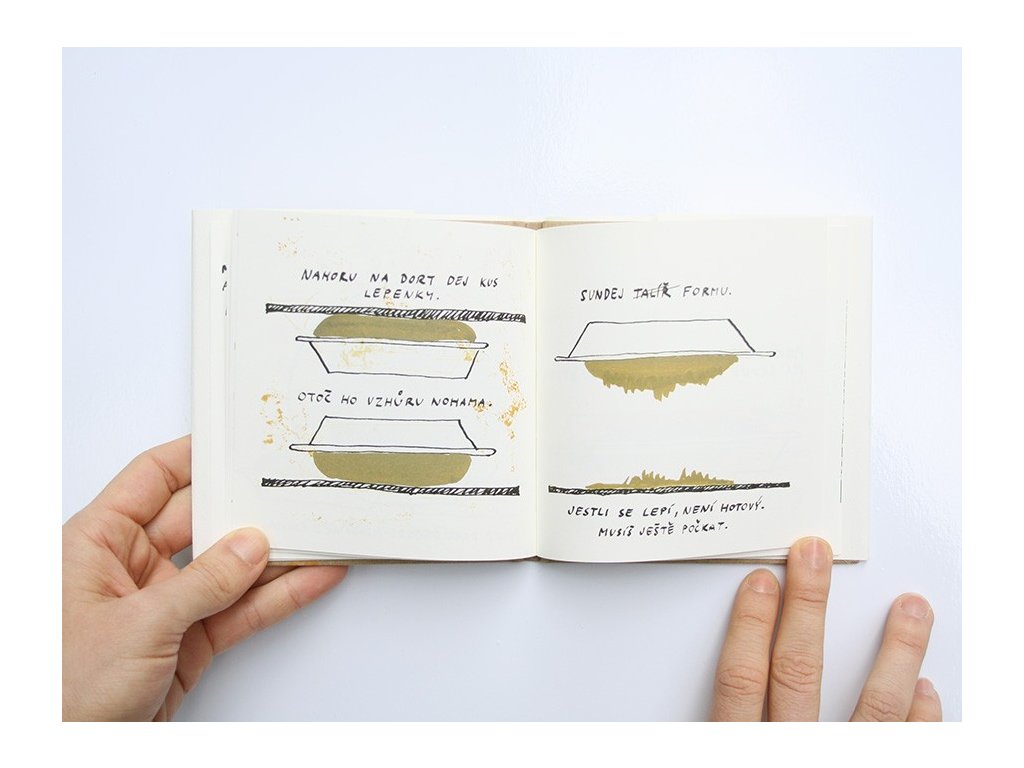 NAHORU NA DORT DEJ KUS
LEPENKY.
OTOČ HO VZHŮRU NOHAMA.
SUNDEJ TALÍŘ FORMU.
JESTLI SE LEPÍ, NENÍ HOTOVÝ.
MUSÍŠ JEŠTĚ POČKAT.